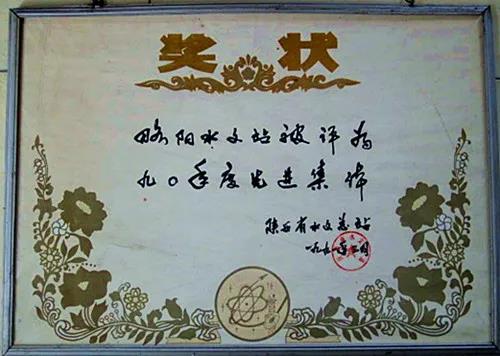 奖状
略阳水文站被评为
九〇年度先进集体
陕西省水文总站
一九九一年二月